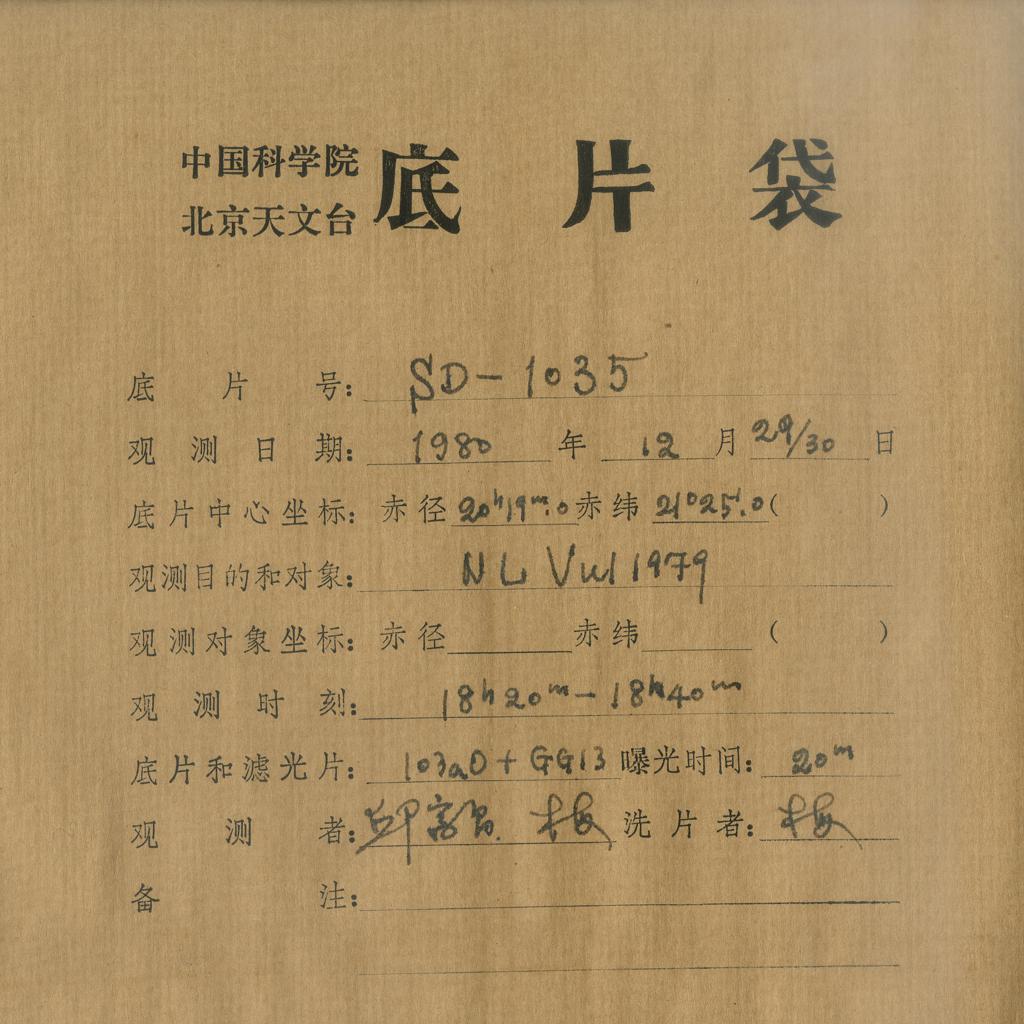 中国科学院
北京天文台
底片袋
底片号： SD-1035
观测日期： 1980 年 12 月 29/30 日
底片中心坐标： 赤径 20h19m.0 赤纬 21°25'.0 ( )
观测目的和对象： NL Vul 1979
观测对象坐标： 赤径 赤纬 ( )
观测时刻： 18h20m - 18h40m
底片和滤光片： 103aD + GG13 曝光时间： 20m
观测者： 梅 洗片者： 梅
备注：